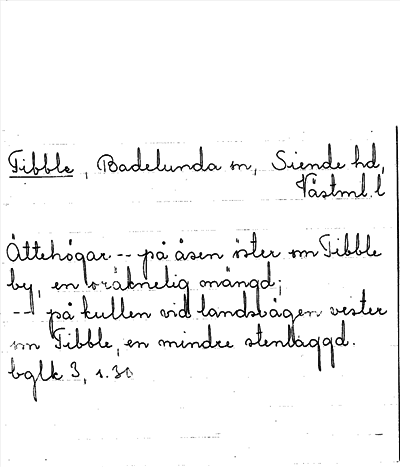 Tibble, Badelunda sn, Siende hd,
Västml. l
Ättehögar -- på åsen öster om Tibble
by, en oräknelig mängd;
-- på kullen vid landsvägen vester
om Tibble, en mindre stenlaggd.
bglk 3, s. 30